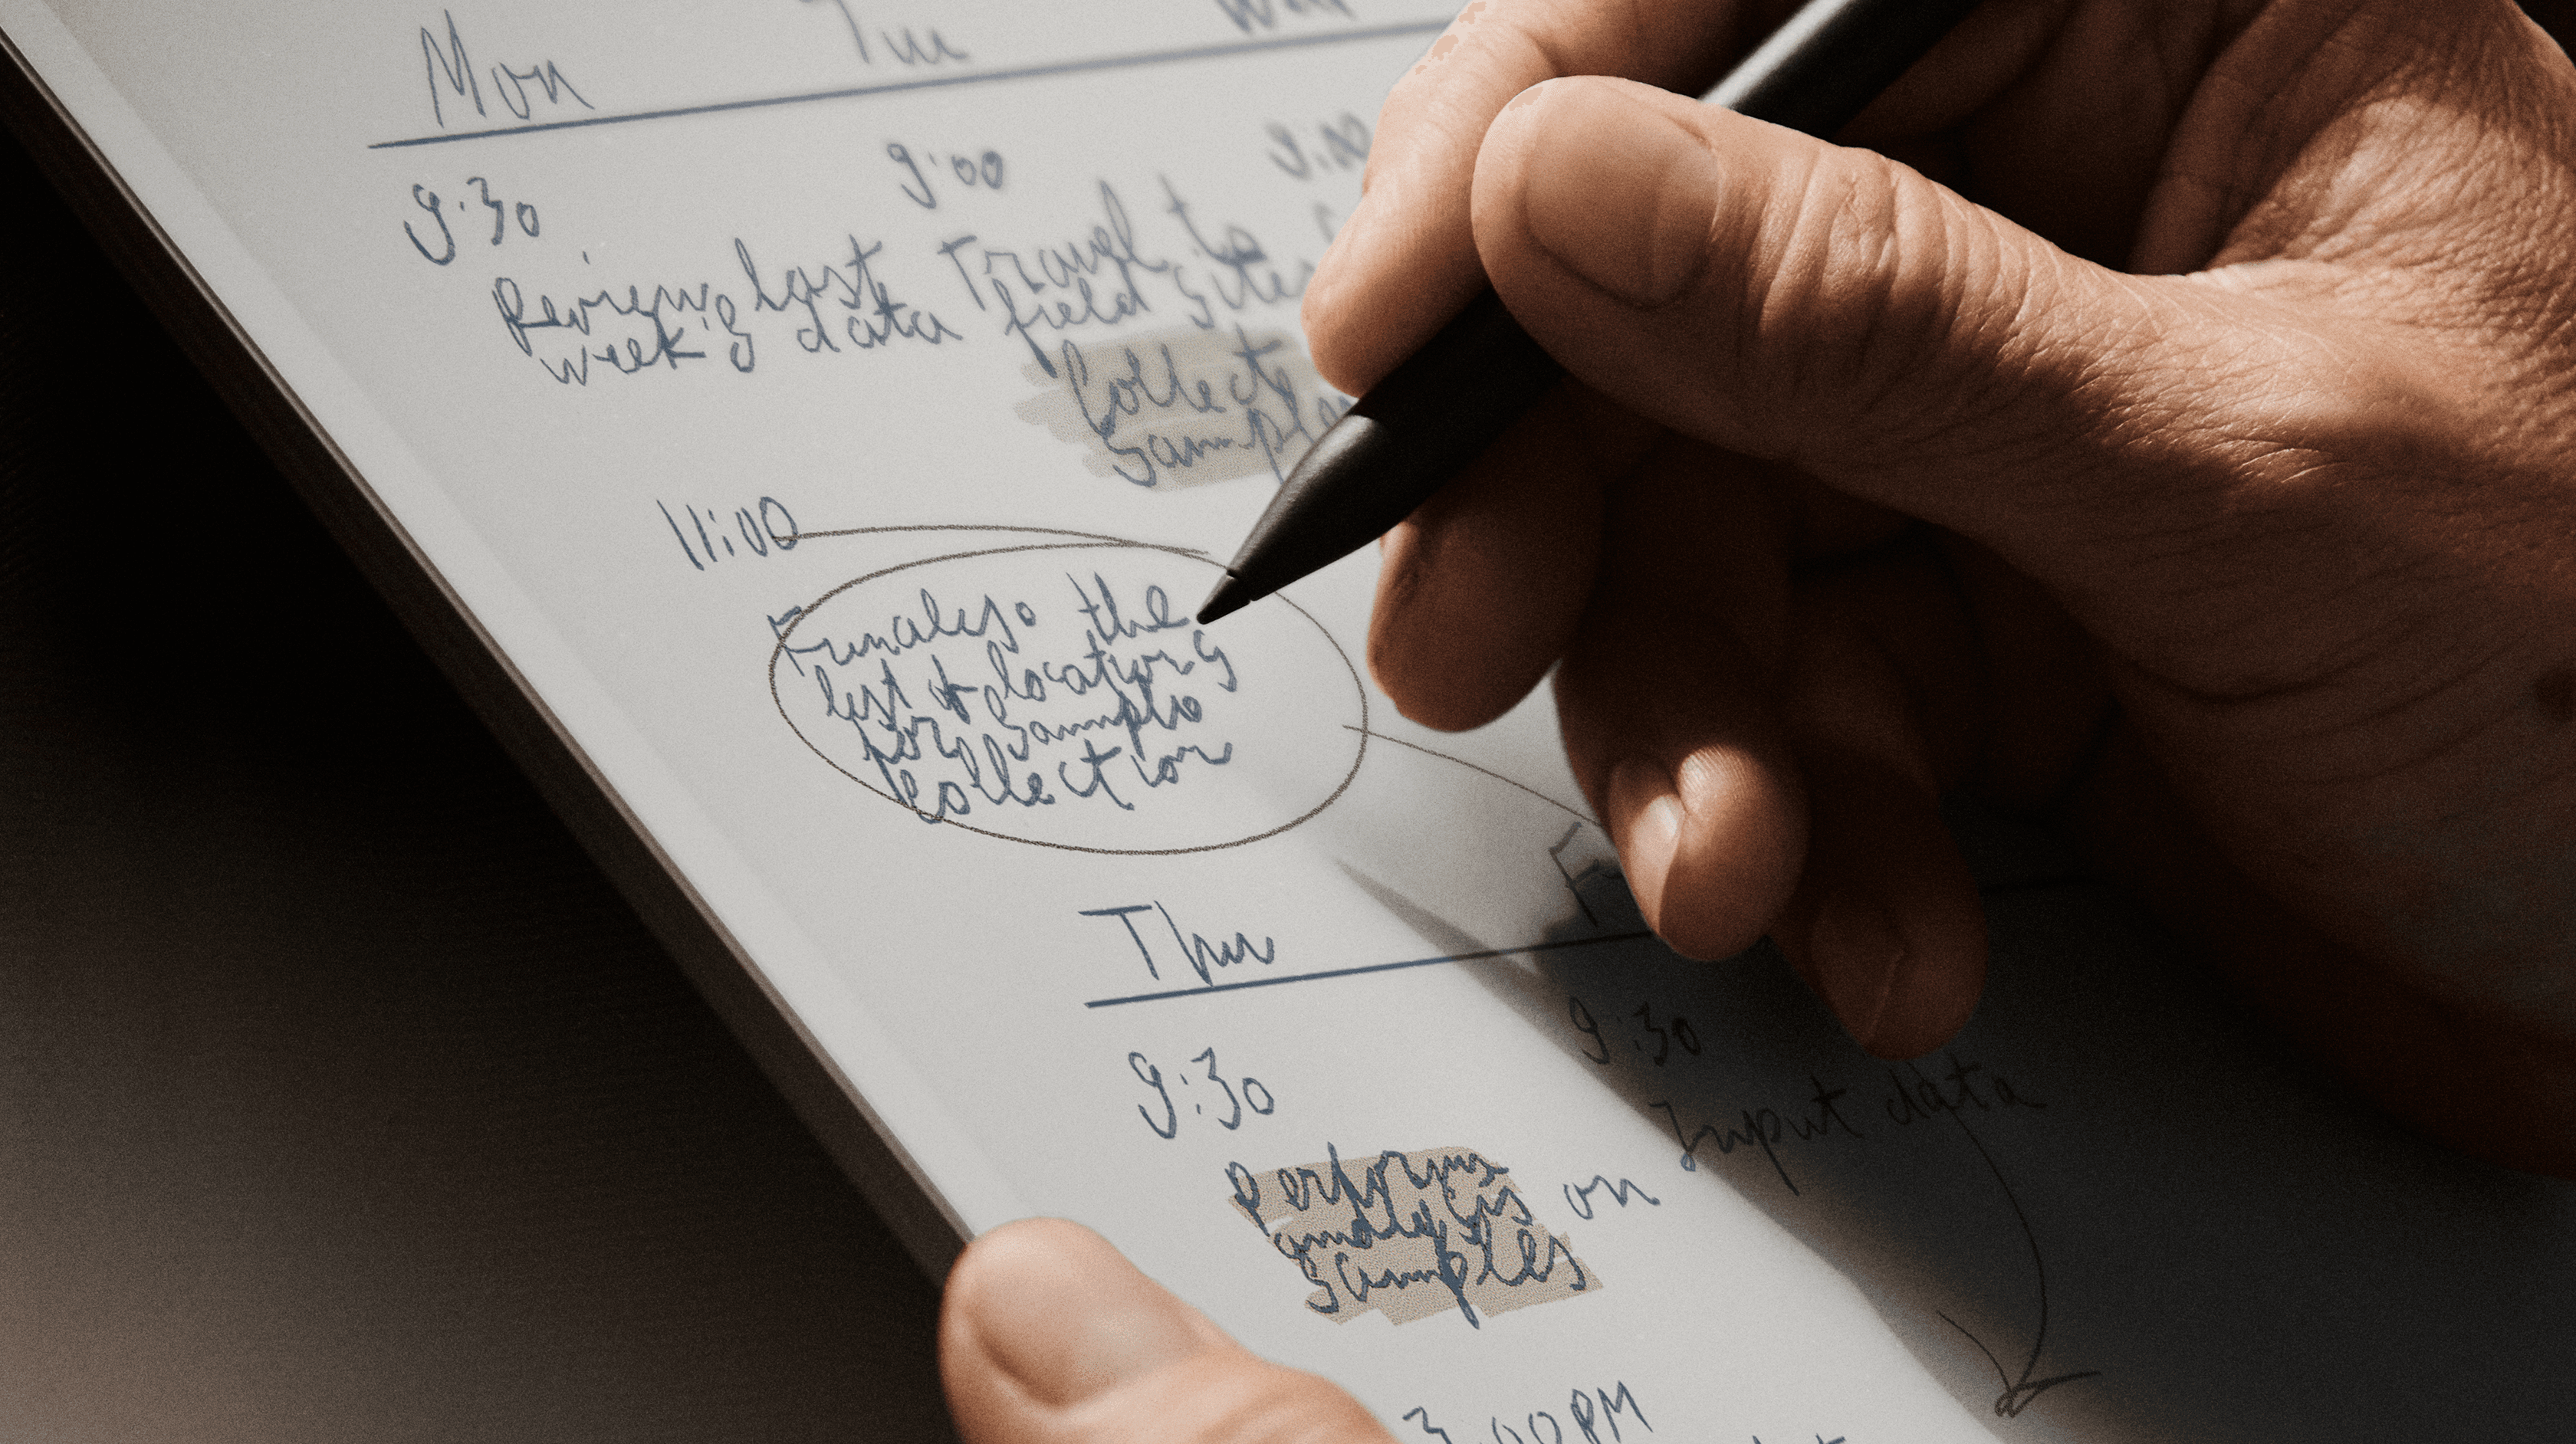 Mon
Tue
Wed
9:30
Review last
week's data
11:00
Finalise the
list of locations
for sample
collection
9:00
Travel to
field sites
Collect
samples
9:00
Thur
9:30
Perform
analysis on
samples
3:00PM
9:30
Input data